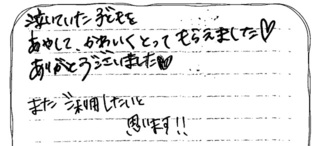 泣いていた子どもを
あやして、かわいくとってもらえました♡
ありがとうございました♥
またご利用したいと
思います!!